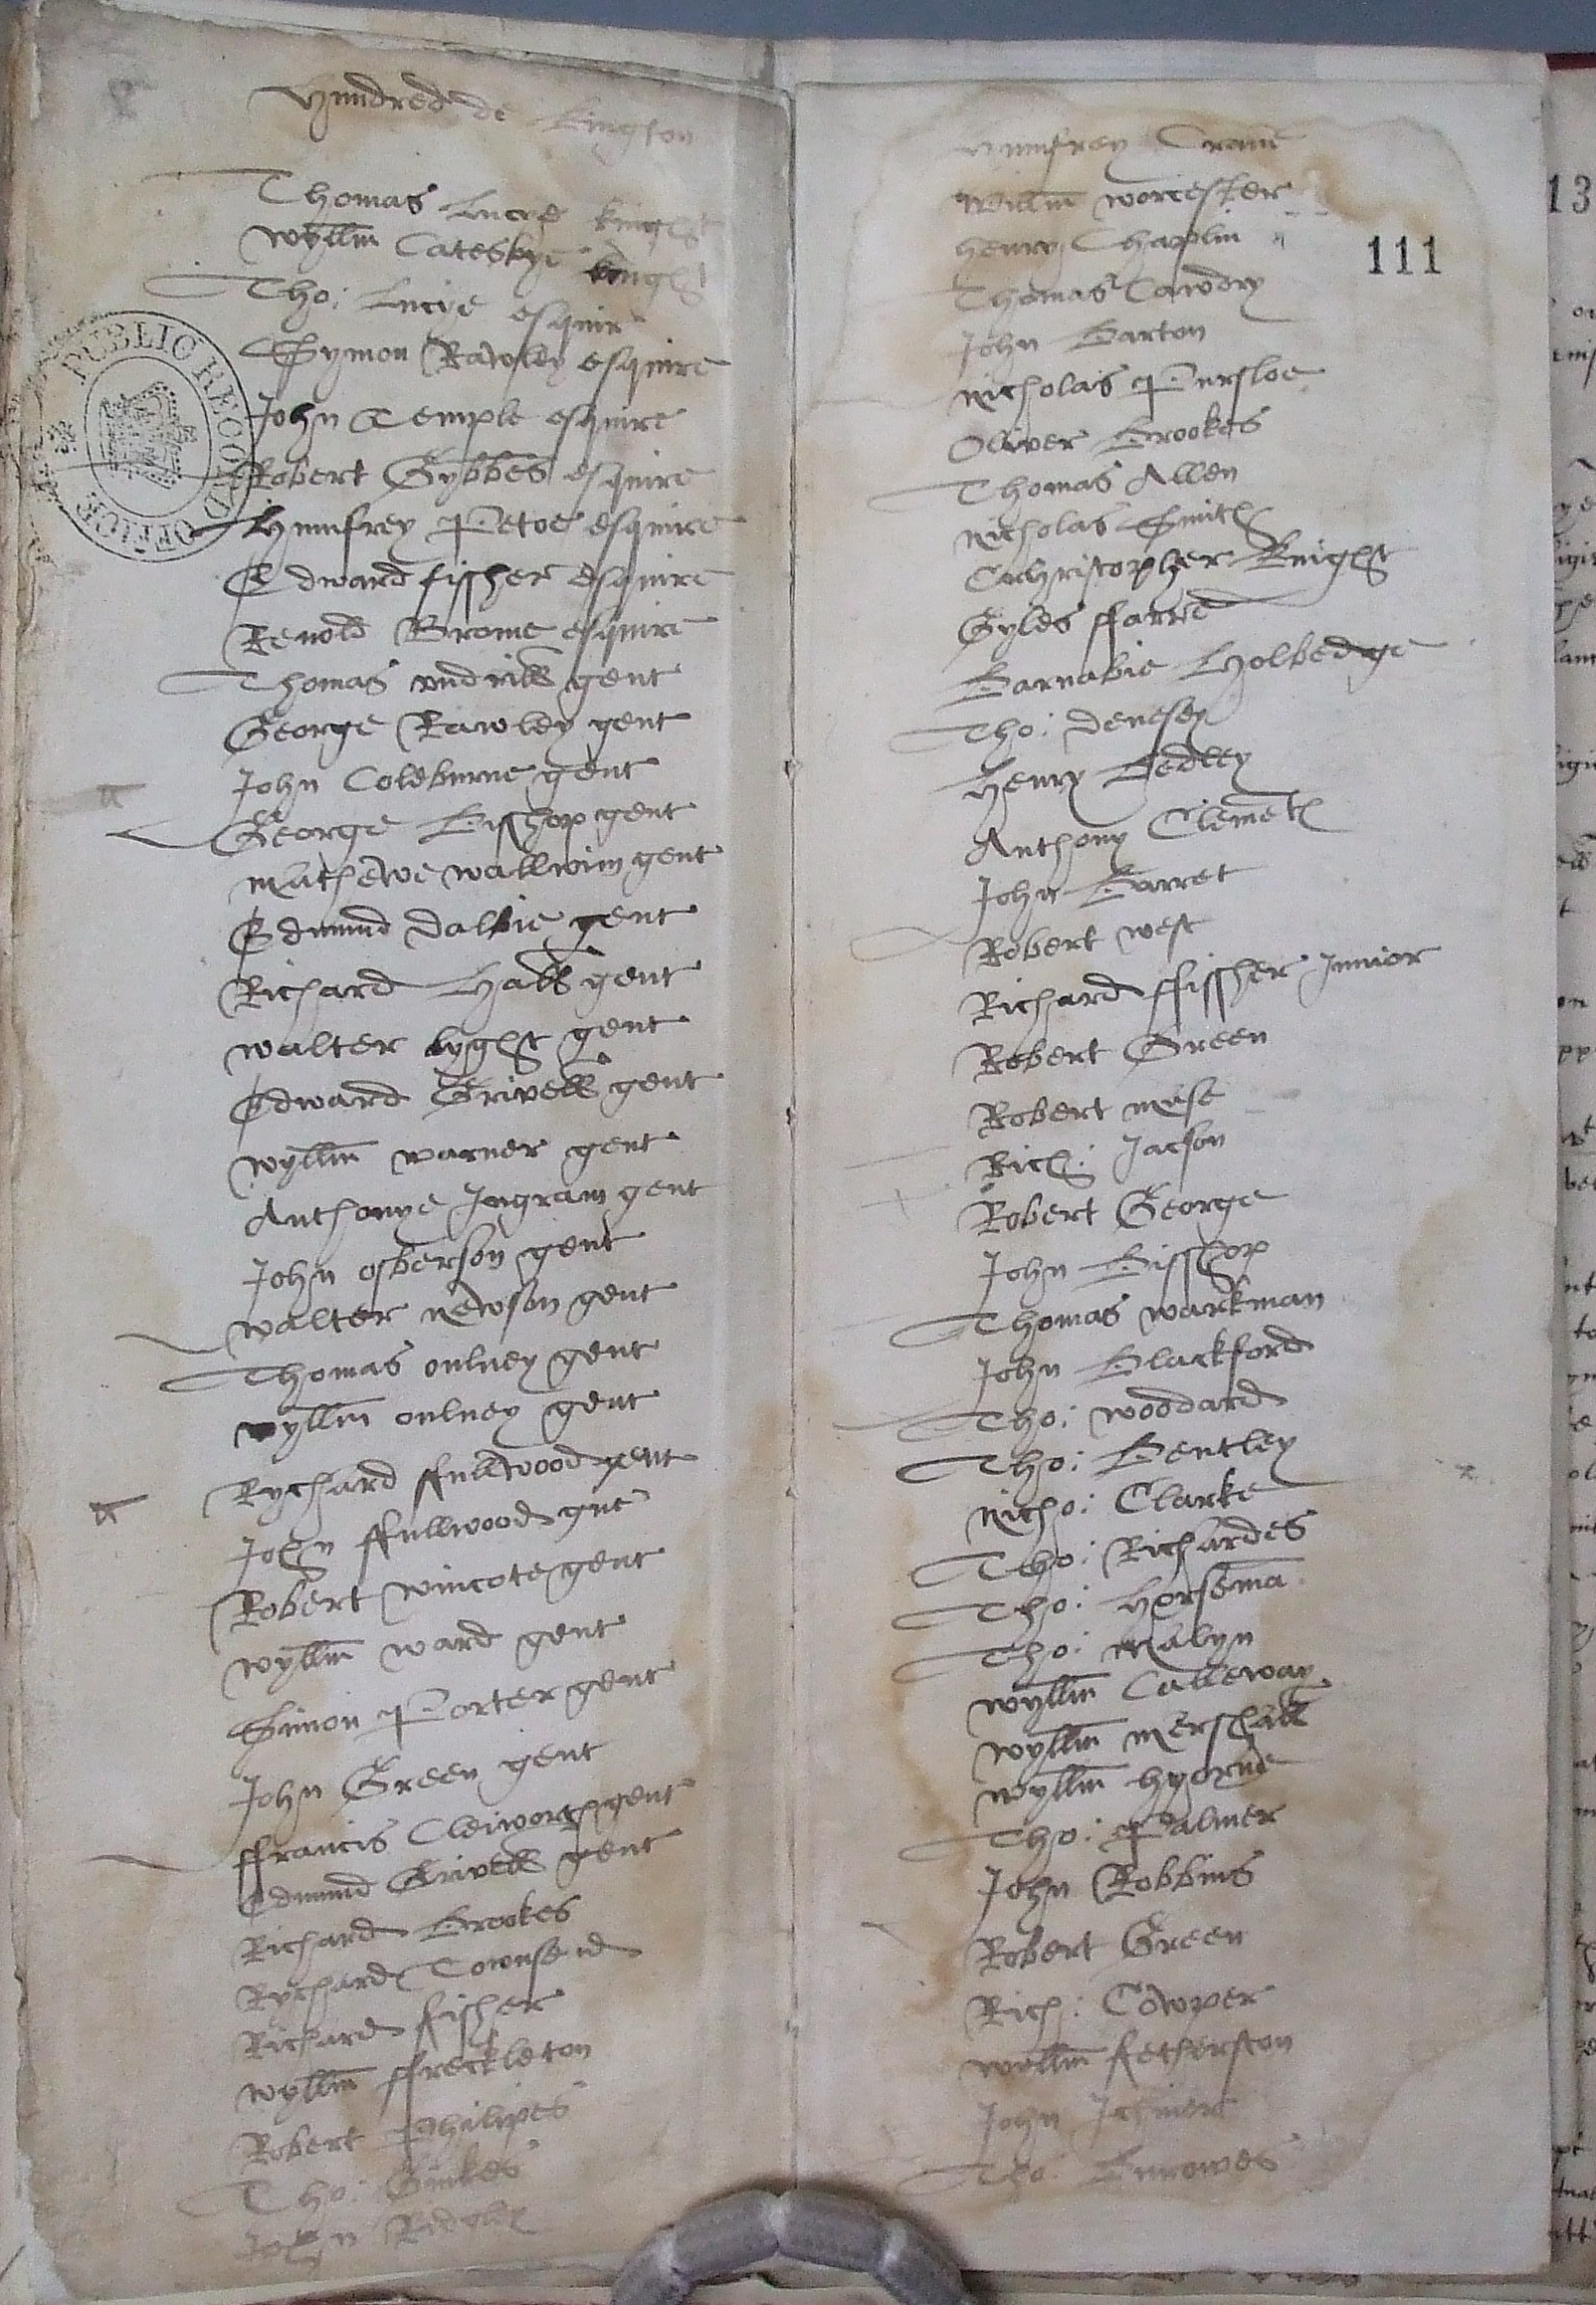 Hundred de Kington
Thomas Lucye knight
Wyllm Catesbye knight
Tho: Lucye esquire
Symon Rawley esquire
John Temple esquire
Robert Gybbes esquire
Humfrey Petoe esquire
Edward fissher esquire
Renold Brome esquire
Thomas vndrill gent
George Rawley gent
John Coleburne gent
George Bisshop gent
Mathewe wallwin gent
Edmund Dalbie gent
Richard Hall gent
walter lyght gent
Edward Grivell gent
wyllm warner gent
Anthonye Ingram gent
John osberson gent
walter newson gent
Thomas oulney gent
wyllm oulney gent
Rychard ffullwood gent
John ffullwood gent
Robert wincote gent
wyllm ward gent
Simon Porter gent
John Green gent
ffrancis Cleiworth gent
Edmund Grivell gent
Richard Brookes
Rychard Townsend
Richard fisher
wyllm ffreckleton
Robert Philipes
Tho:
John Ridgley
PUBLIC RECORD OFFICE
Humfrey Crane
Willm worcester
henry Chaplin
111
Thomas Cawdry
John Barton
Nicholas Pursloe
Oliver Brookes
Thomas Allen
Nicholas Smith
Christopher Knight
Gyles ffarre
Barnabie Holbedge
Tho: Denesey
Henry Bedley
Anthony Clemeth
John Barret
Robert west
Richard ffissher Junior
Robert Green
Robert muse
Rich: Jacson
Robert George
John Bisshop
Thomas warkman
John Blackford
Tho: woodard
Tho: Bentley
Nicho: Clarke
Tho: Richardes
Tho: Horsema
Tho: Malyn
wyllm Calleway
wyllm Mershall
wyllm hyorne
Tho: Palmer
John Robbins
Robert Green
Rich: Cowper
wyllm fetherston
John
Tho: Burowes
13